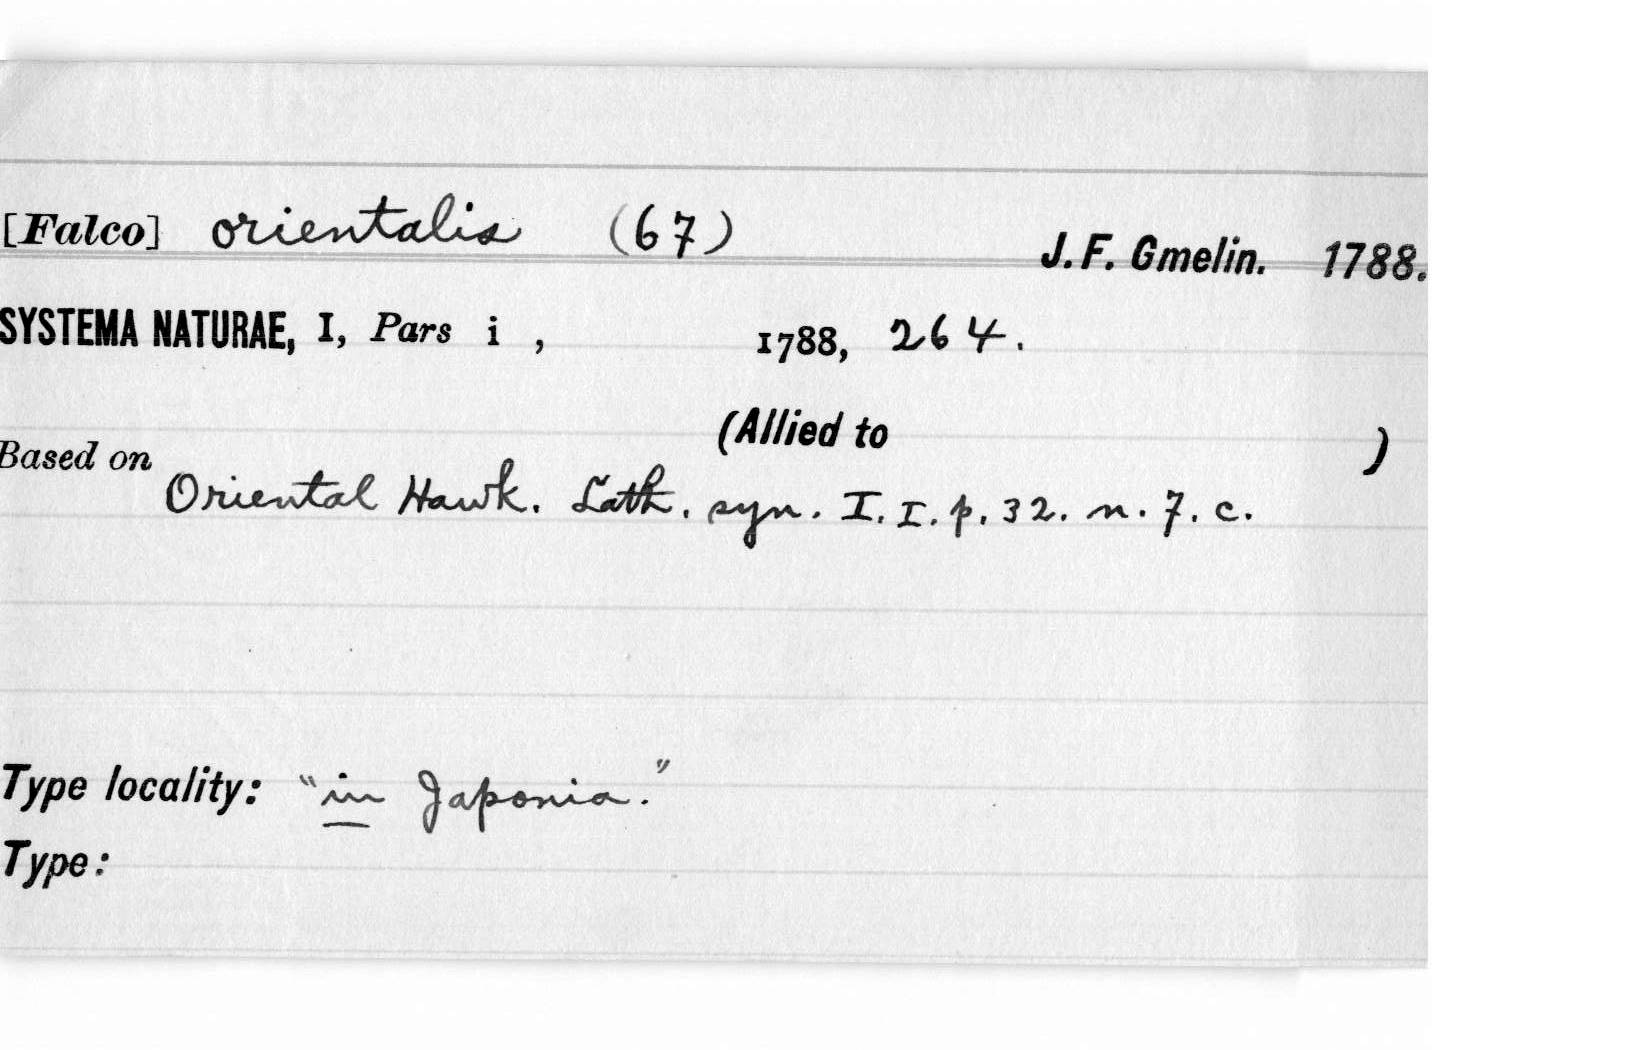 [Falco] orientalis (67) J. F. Gmelin. 1788.
SYSTEMA NATURAE, I, Pars i , 1788, 264.
(Allied to )
Based on
Oriental Hawk. Lath. syn. I. I. p. 32. n. 7. c.
Type locality: "in Japonia."
Type: